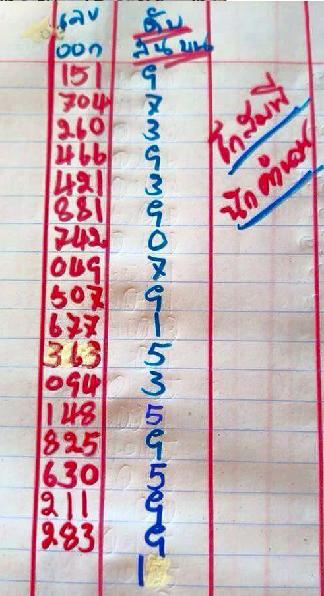 เลข ดับ
ออก สิบบน
151 9
704 7
260 3
466 9
421 3
881 9
742 0
049 7
507 9
677 1
363 5
094 3
148 5
825 9
630 5
211 9
283 9
1
นักคำนวณ